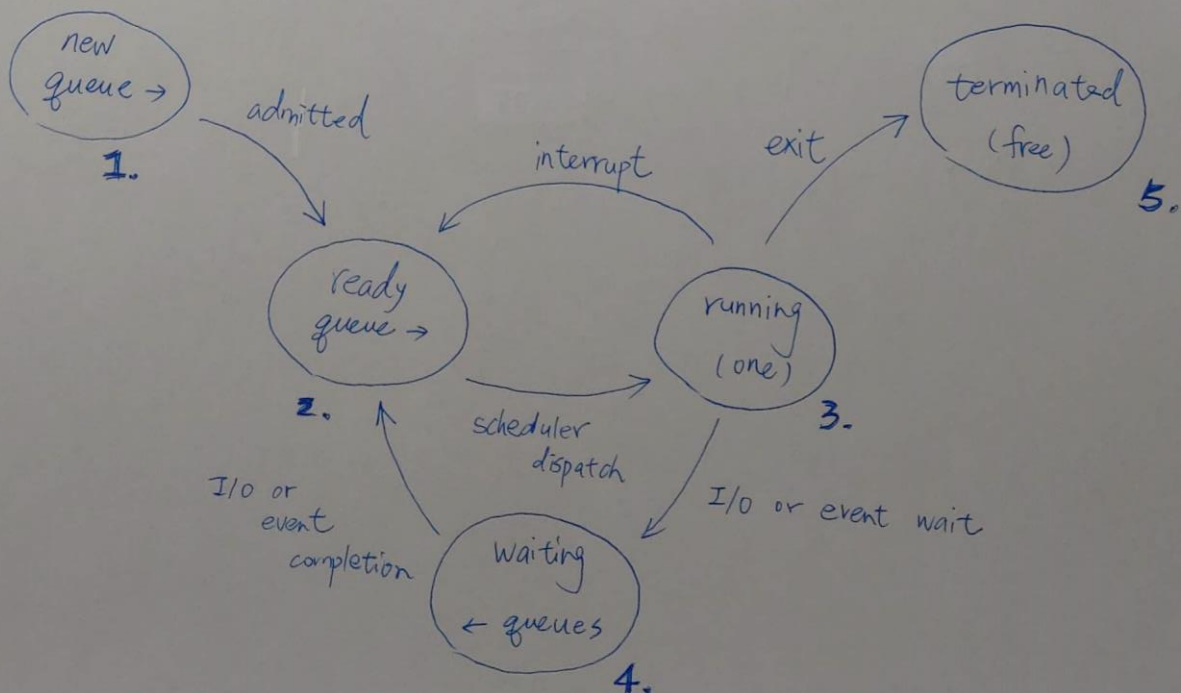 new
queue →
1.
admitted
interrupt
exit
terminated
(free)
5.
ready
queue →
2.
running
(one)
3.
scheduler
dispatch
I/O or
event
completion
I/O or event wait
waiting
← queues
4.